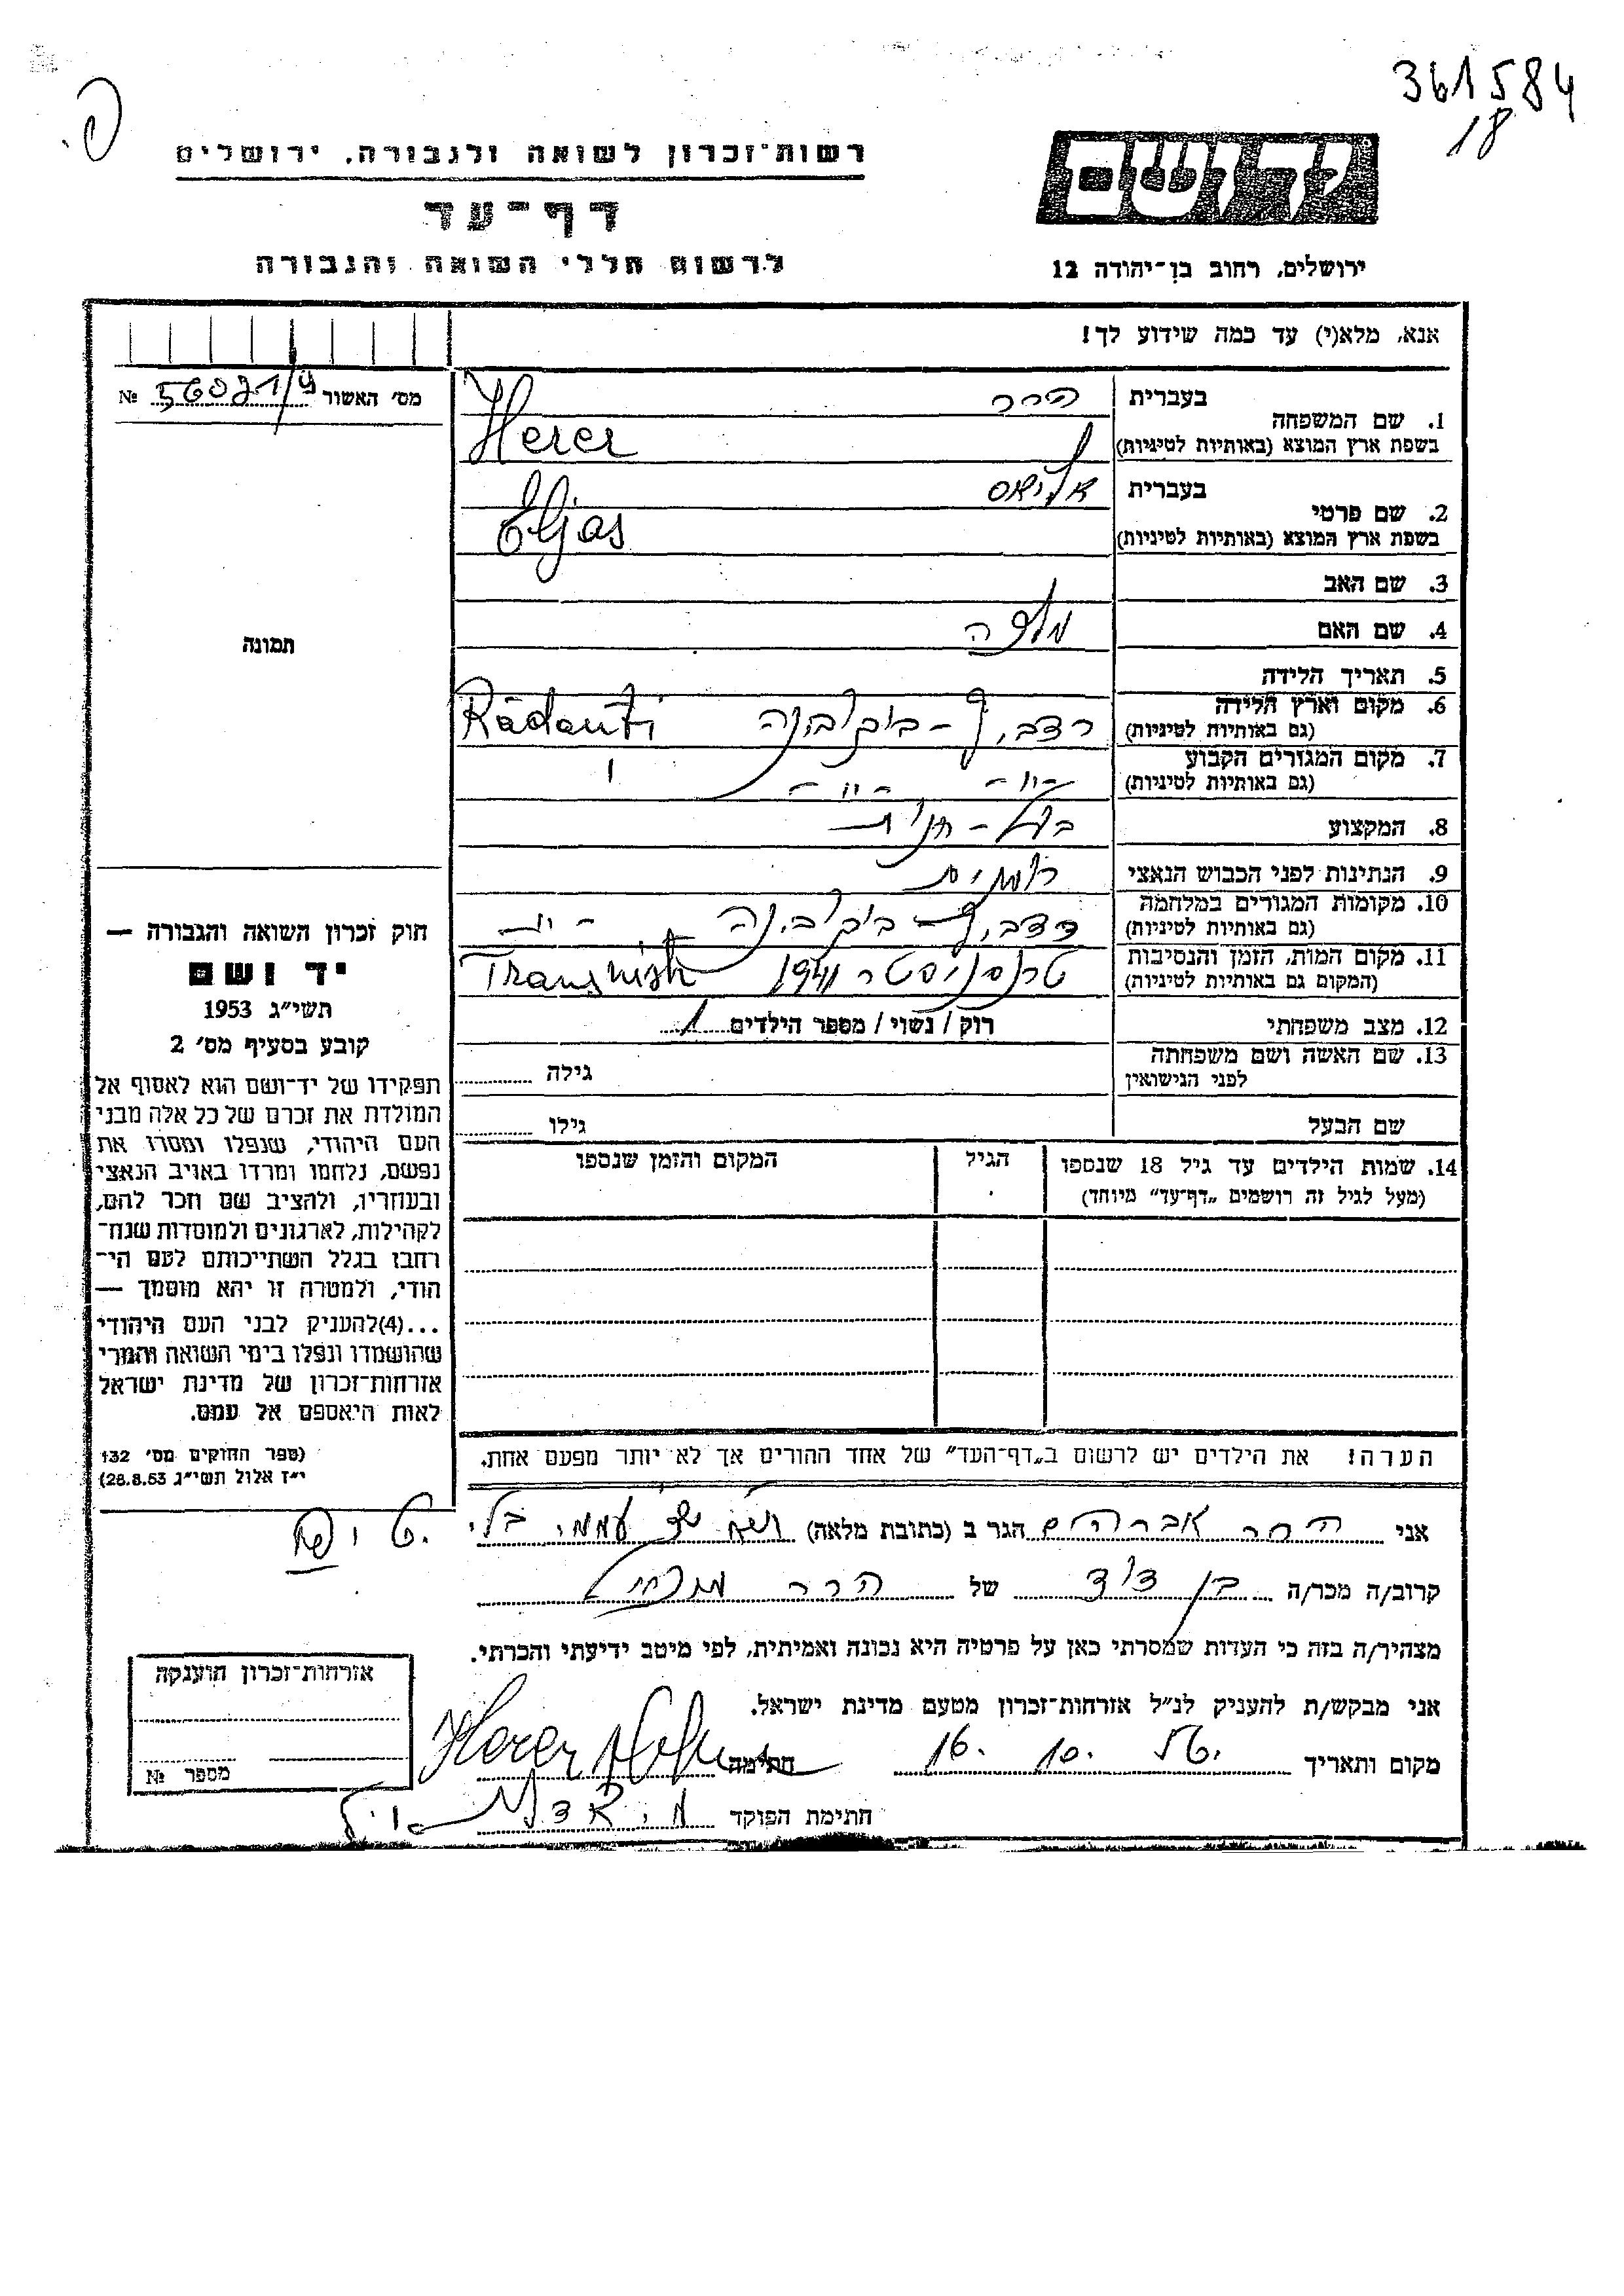 361584
18
פ.
רשות־זכרון לשואה ולגבורה. ירושלים
יד ושם
דף־עד
לרשום חללי השואה והגבורה
ירושלים. רחוב בן־יהודה 12
אנא, מלא(י) עד כמה שידוע לך!
מס׳ האשור № 56071/ע
1. שם המשפחה
בעברית הרר
בשפת ארץ המוצא (באותיות לטיניות) Herer
2. שם פרטי
בעברית אליאס
בשפת ארץ המוצא (באותיות לטיניות) Eljas
3. שם האב
4. שם האם מלכה
תמונה
5. תאריך הלידה
6. מקום וארץ הלידה
(גם באותיות לטיניות) רדביץ - בוקובינה Rădăuti
7. מקום המגורים הקבוע
(גם באותיות לטיניות) -״- -״-
8. המקצוע בעל - חנית
9. הנתינות לפני הכבוש הנאצי רומנית
10. מקומות המגורים במלחמה
(גם באותיות לטיניות) רדביץ - בוקובינה -״-
11. מקום המות, הזמן והנסיבות
(המקום גם באותיות לטיניות) טרנסניסטר 1941 Transnistr
12. מצב משפחתי רוק / נשוי / מספר הילדים 1
13. שם האשה ושם משפחתה
לפני הנישואין גילה
שם הבעל גילו
14. שמות הילדים עד גיל 18 שנספו
(מעל לגיל זה רושמים „דף־עד״ מיוחד)
הגיל
המקום והזמן שנספו
הערה! את הילדים יש לרשום ב„דף־העד״ של אחד ההורים אך לא יותר מפעם אחת.
חוק זכרון השואה והגבורה —
יד ושם
תשי״ג 1953
קובע בסעיף מס׳ 2
תפקידו של יד־ושם הוא לאסוף אל
המולדת את זכרם של כל אלה מבני
העם היהודי, שנפלו ומסרו את
נפשם, נלחמו ומרדו באויב הנאצי
ובעוזריו, ולהציב שם וזכר להם,
לקהילות, לארגונים ולמוסדות שנח־
רחבו בגלל השתייכותם לעם הי־
הודי, ולמטרה זו יהא מוסמך —
...(4)להעניק לבני העם היהודי
שהושמדו ונפלו בימי השואה והמרי
אזרחות־זכרון של מדינת ישראל
לאות היאספם אל עמם.
(ספר החוקים מס׳ 132
י״ז אלול תשי״ג 28.8.53)
אני הרר אברהם הגר ב (כתובת מלאה) עממי
קרוב/ה מכר/ה בן דוד של הרר
מצהיר/ה בזה כי העדות שמסרתי כאן על פרטיה היא נכונה ואמיתית, לפי מיטב ידיעתי והכרתי.
אני מבקש/ת להעניק לנ״ל אזרחות־זכרון מטעם מדינת ישראל.
מקום ותאריך 16. 10. 56. חתימה Herer
חתימת הפוקד
אזרחות־זכרון הוענקה
מספר №